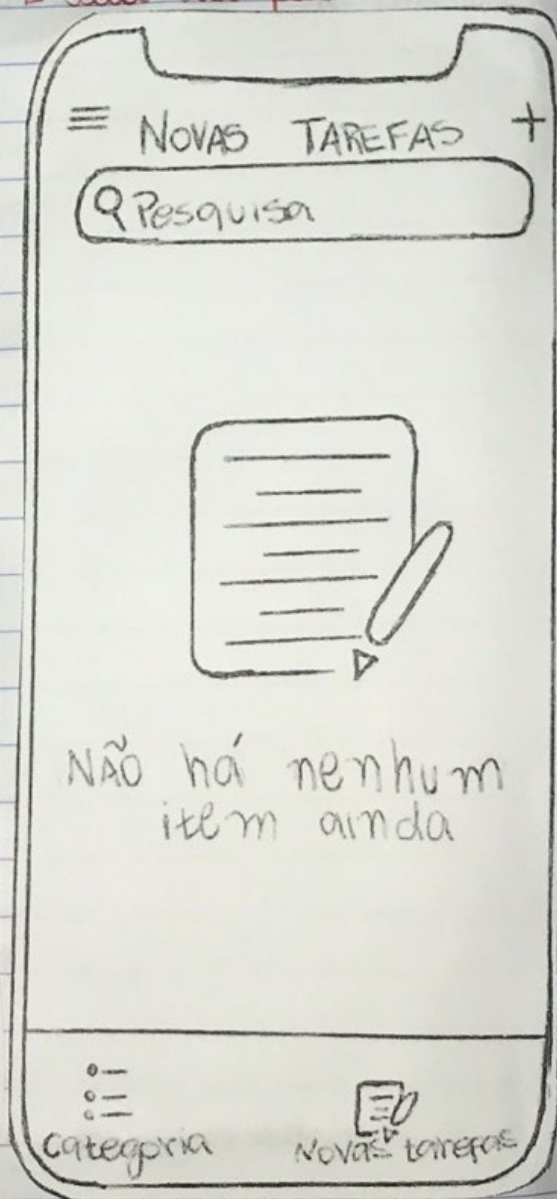 NOVAS TAREFAS
Pesquisa
NÃO há nenhum
item ainda
categoria
Novas tarefas